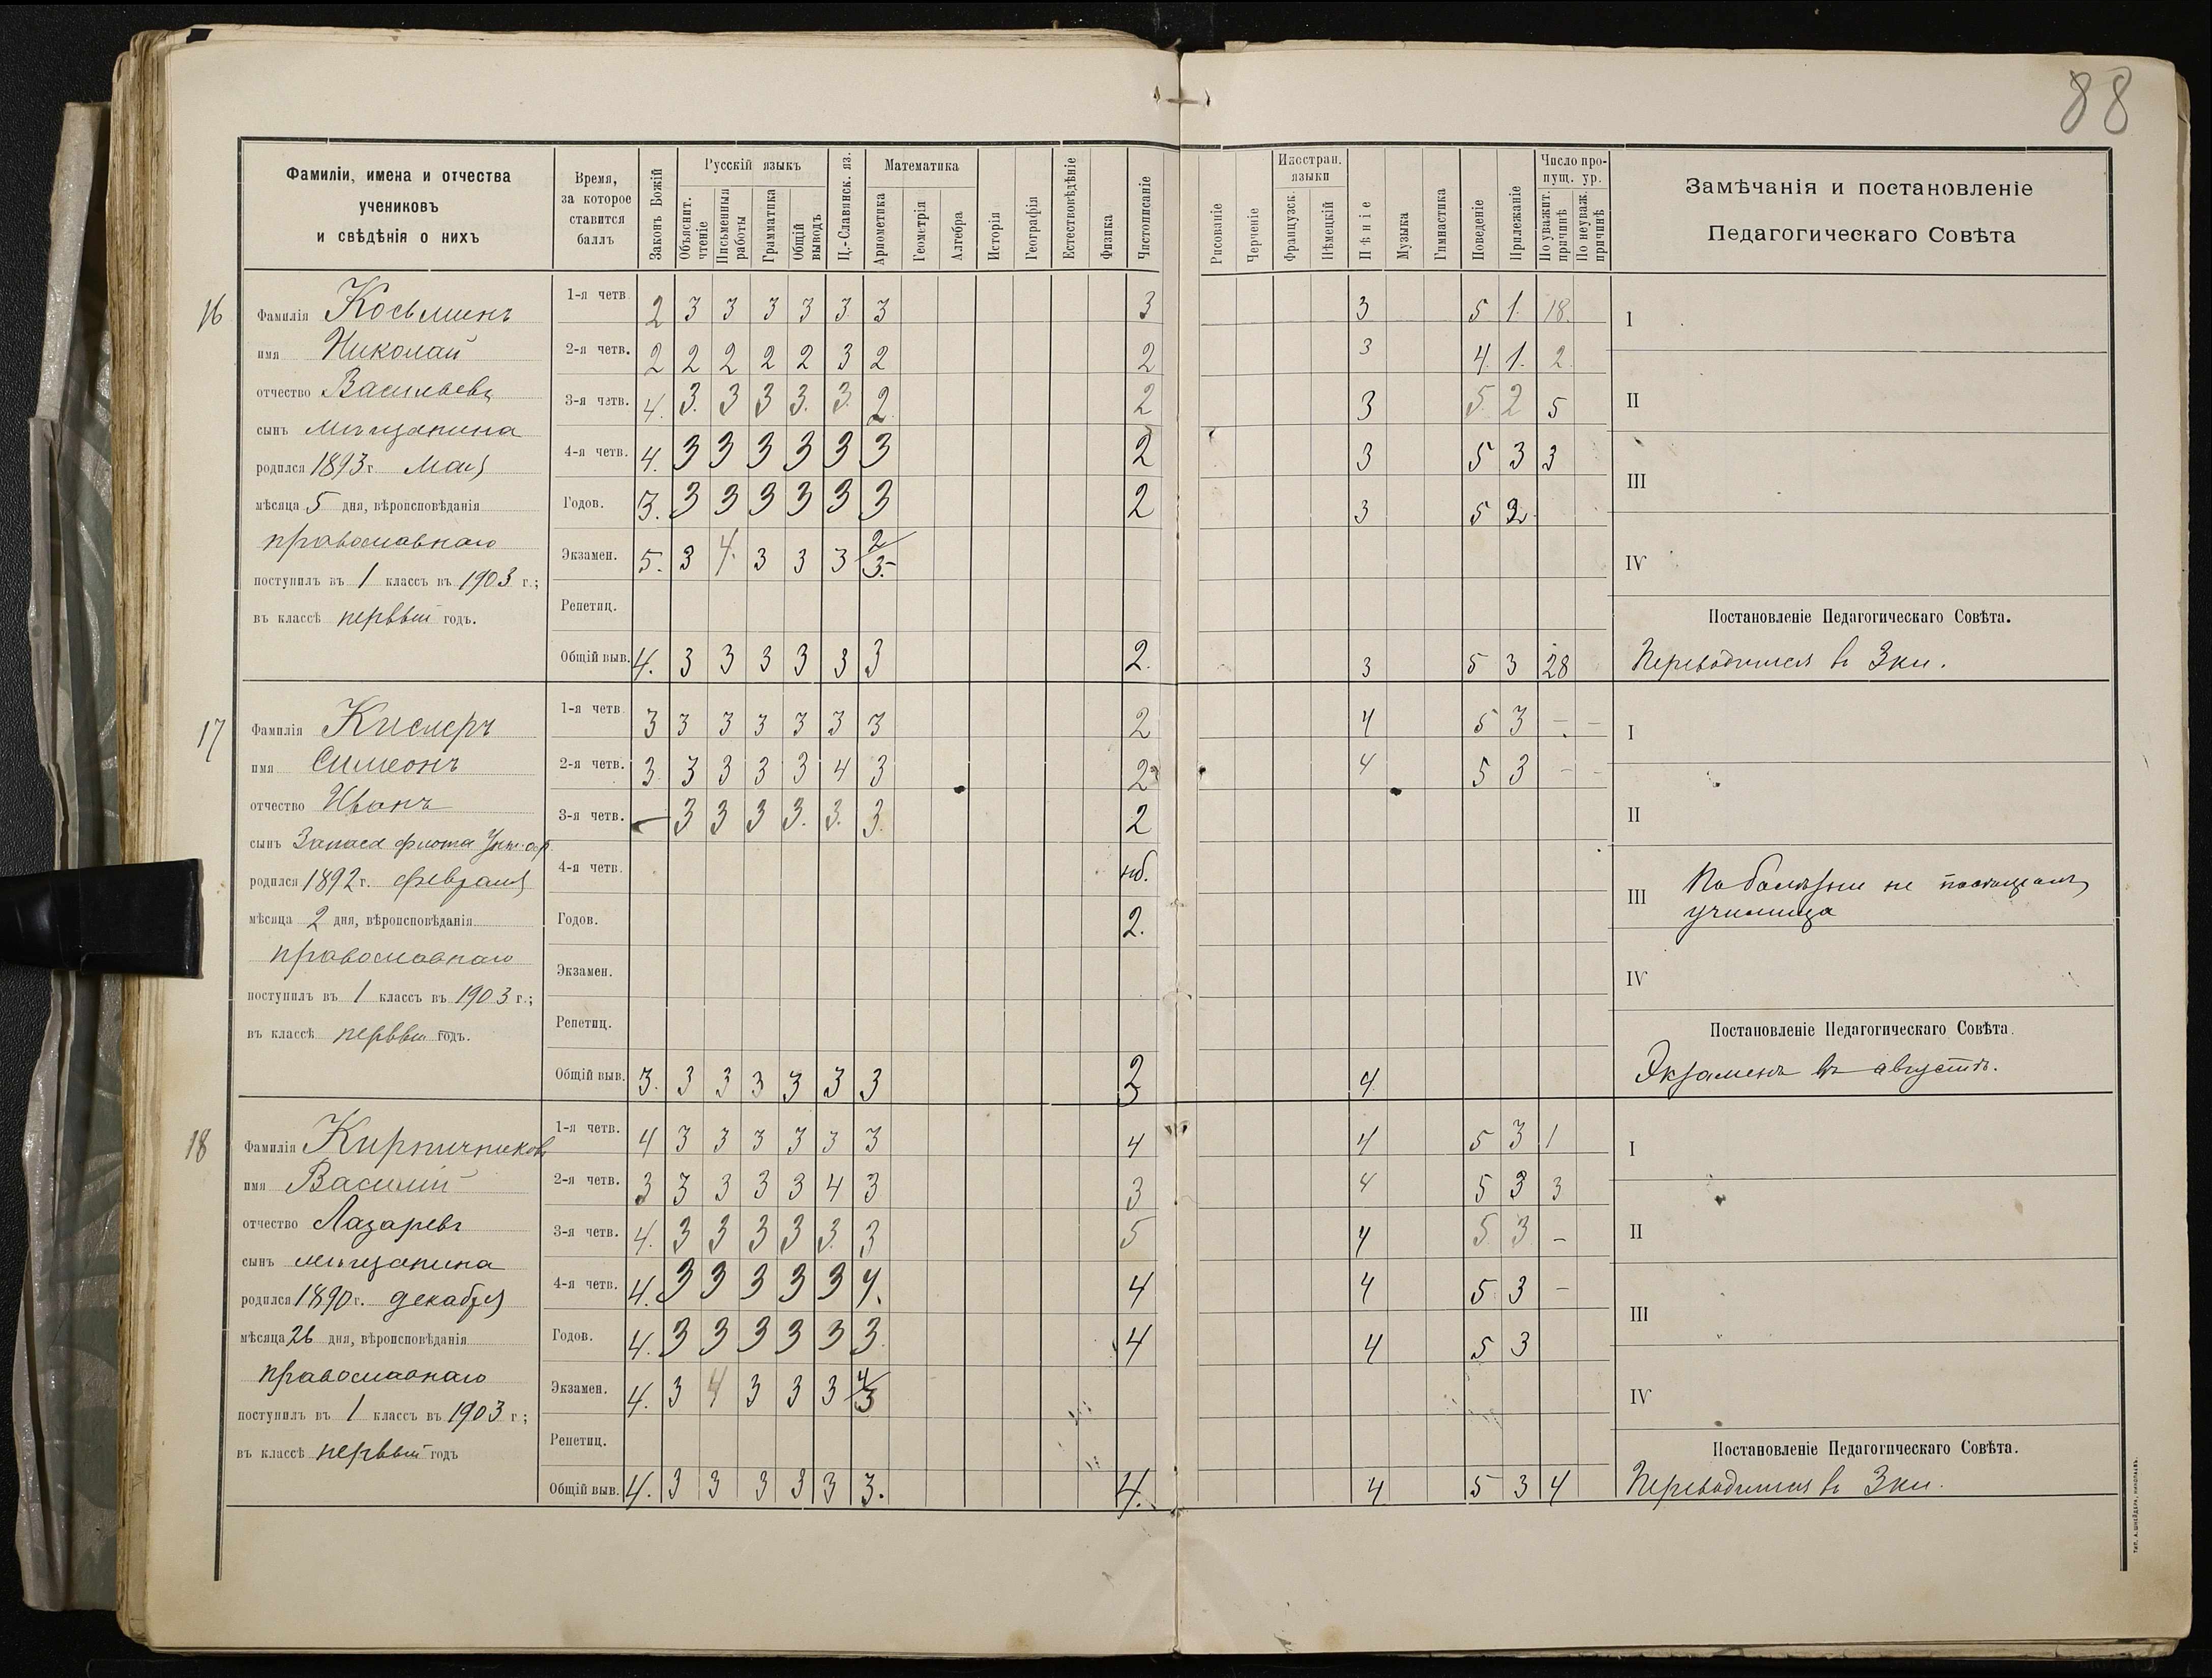 88
Фамиліи, имена и отчества
учениковъ
и свѣдѣнія о нихъ
Время,
за которое
ставится
баллъ
Законъ Божій
Русскій языкъ
Объяснит. чтеніе
Письменныя работы
Грамматика
Общій выводъ
Ц.-Славянск. яз.
Математика
Ариѳметика
Геометрія
Алгебра
Исторія
Географія
Естествовѣдѣніе
Физика
Чистописаніе
Рисованіе
Черченіе
Иностран. языки
Французск.
Нѣмецкій
Пѣніе
Музыка
Гимнастика
Поведеніе
Прилежаніе
Число пропущ. ур.
По уважит. причинѣ
По неуваж. причинѣ
Замѣчанія и постановленіе
Педагогическаго Совѣта
16
Фамилія Косьминъ
имя Николай
отчество Васильевъ
сынъ мѣщанина
родился 1893 г. Мая
мѣсяца 5 дня, вѣроисповѣданія
православнаго
поступилъ въ 1 классъ въ 1903 г.;
въ классѣ первый годъ.
1-я четв. 2 3 3 3 3 3 3 3 3 5 1. 18.
2-я четв. 2 2 2 2 2 3 2 2 3 4. 1. 2.
3-я четв. 4. 3. 3 3 3. 3. 2. 2 3 5 2 5
4-я четв. 4. 3 3 3 3 3 3 2 3 5 3 3
Годов. 3. 3 3 3 3 3 3 2 3 5
Экзамен. 5. 3 4. 3 3 3 2/3.-
Репетиц.
Общій выв. 4. 3 3 3 3 3 3 2. 3 5 3 28
I
II
III
IV
Постановленіе Педагогическаго Совѣта.
Переводится въ 3 кл.
17
Фамилія
имя Симеонъ
отчество Иванъ
сынъ Запаса флота Унт. оф.
родился 1892 г. февраля
мѣсяца 2 дня, вѣроисповѣданія
православнаго
поступилъ въ 1 классъ въ 1903 г.;
въ классѣ первый годъ.
1-я четв. 3 3 3 3 3 3 3 2 4 5 3 - -
2-я четв. 3. 3 3 3 3 4 3 2 4 5 3 - -
3-я четв. - 3 3 3 3. 3. 3. 2
4-я четв. нб.
Годов. 2.
Экзамен.
Репетиц.
Общій выв. 3. 3 3 3 3 3 3 2 4
I
II
III По болѣзни не посѣщалъ
училища
IV
Постановленіе Педагогическаго Совѣта.
Экзаменъ въ августѣ.
18
Фамилія Кирпичниковъ
имя Василій
отчество Лазаревъ
сынъ мѣщанина
родился 1890 г. декабря
мѣсяца 26 дня, вѣроисповѣданія
православнаго
поступилъ въ 1 классъ въ 1903 г.;
въ классѣ первый годъ
1-я четв. 4 3 3 3 3 3 3 4 4 5 3 1
2-я четв. 3 3 3 3 3 4 3 3 4 5 3 3
3-я четв. 4. 3 3 3 3 3. 3 5 4 5 3 -
4-я четв. 4. 3 3 3 3 3 4. 4 4 5 3 -
Годов. 4. 3 3 3 3 3 3. 4 4 5 3
Экзамен. 4. 3 4 3 3 3 4/3
Репетиц.
Общій выв. 4. 3 3 3 3 3 3. 4. 4 5 3 4
I
II
III
IV
Постановленіе Педагогическаго Совѣта.
Переводится въ 3 кл.
ТИП. А. ШНЕЙДЕРА, НИКОЛАЕВЪ.